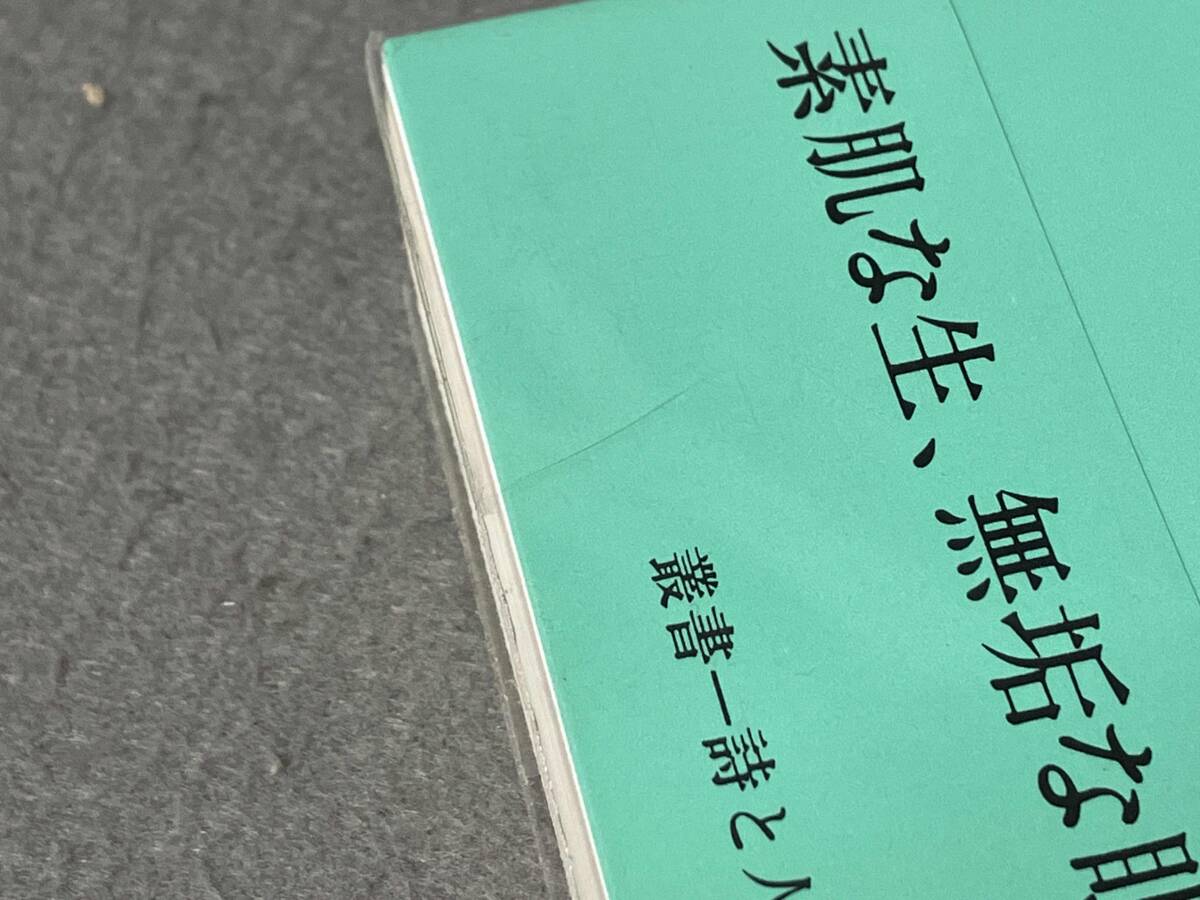 素肌な生、無垢な
叢書―詩と